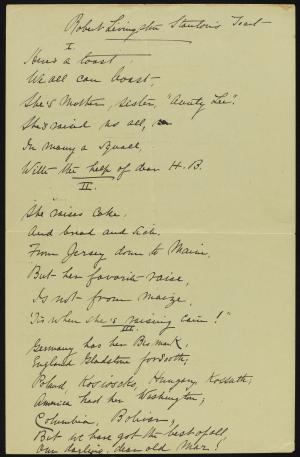 Robert Livingston Stanton's Toast
I
Here's a toast,
We all can boast,
She's Mother, sister, "Aunty Lee".
She's raised us all,
In many a squall,
With the help of dear H.B.
II.
She raises cake,
And bread and
From Jersey down to Maine,
But her favorite raise,
Is not from maize,
'Tis when she's raising cain!"
III
Germany has her Bismark,
England Gladstone forsooth,
Poland Kosciosko, Hungary Kossuth;
America had her Washington;
Columbia, Bolivar,
But we have got the best of all
Our darling, dear old Mar!